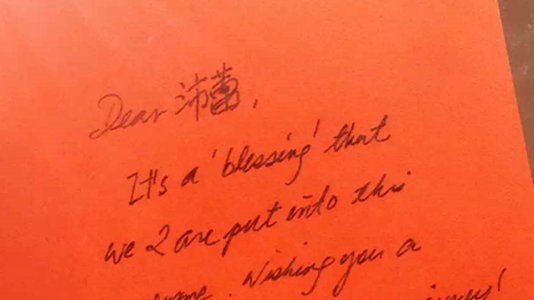 Dear 沛蕾,
It's a 'blessing' that
we 2 are put into this
. Wishing you a